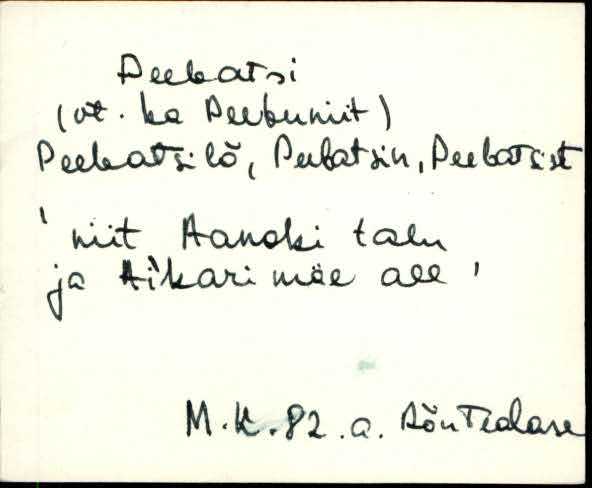 Peebatsi
(vt. ka Peebuniit)
Peebatsilõ, Peebatsin, Peebatsist
' niit Aanoki talu
ja Aikari mäe all '
M.K. 82.a. Rõu